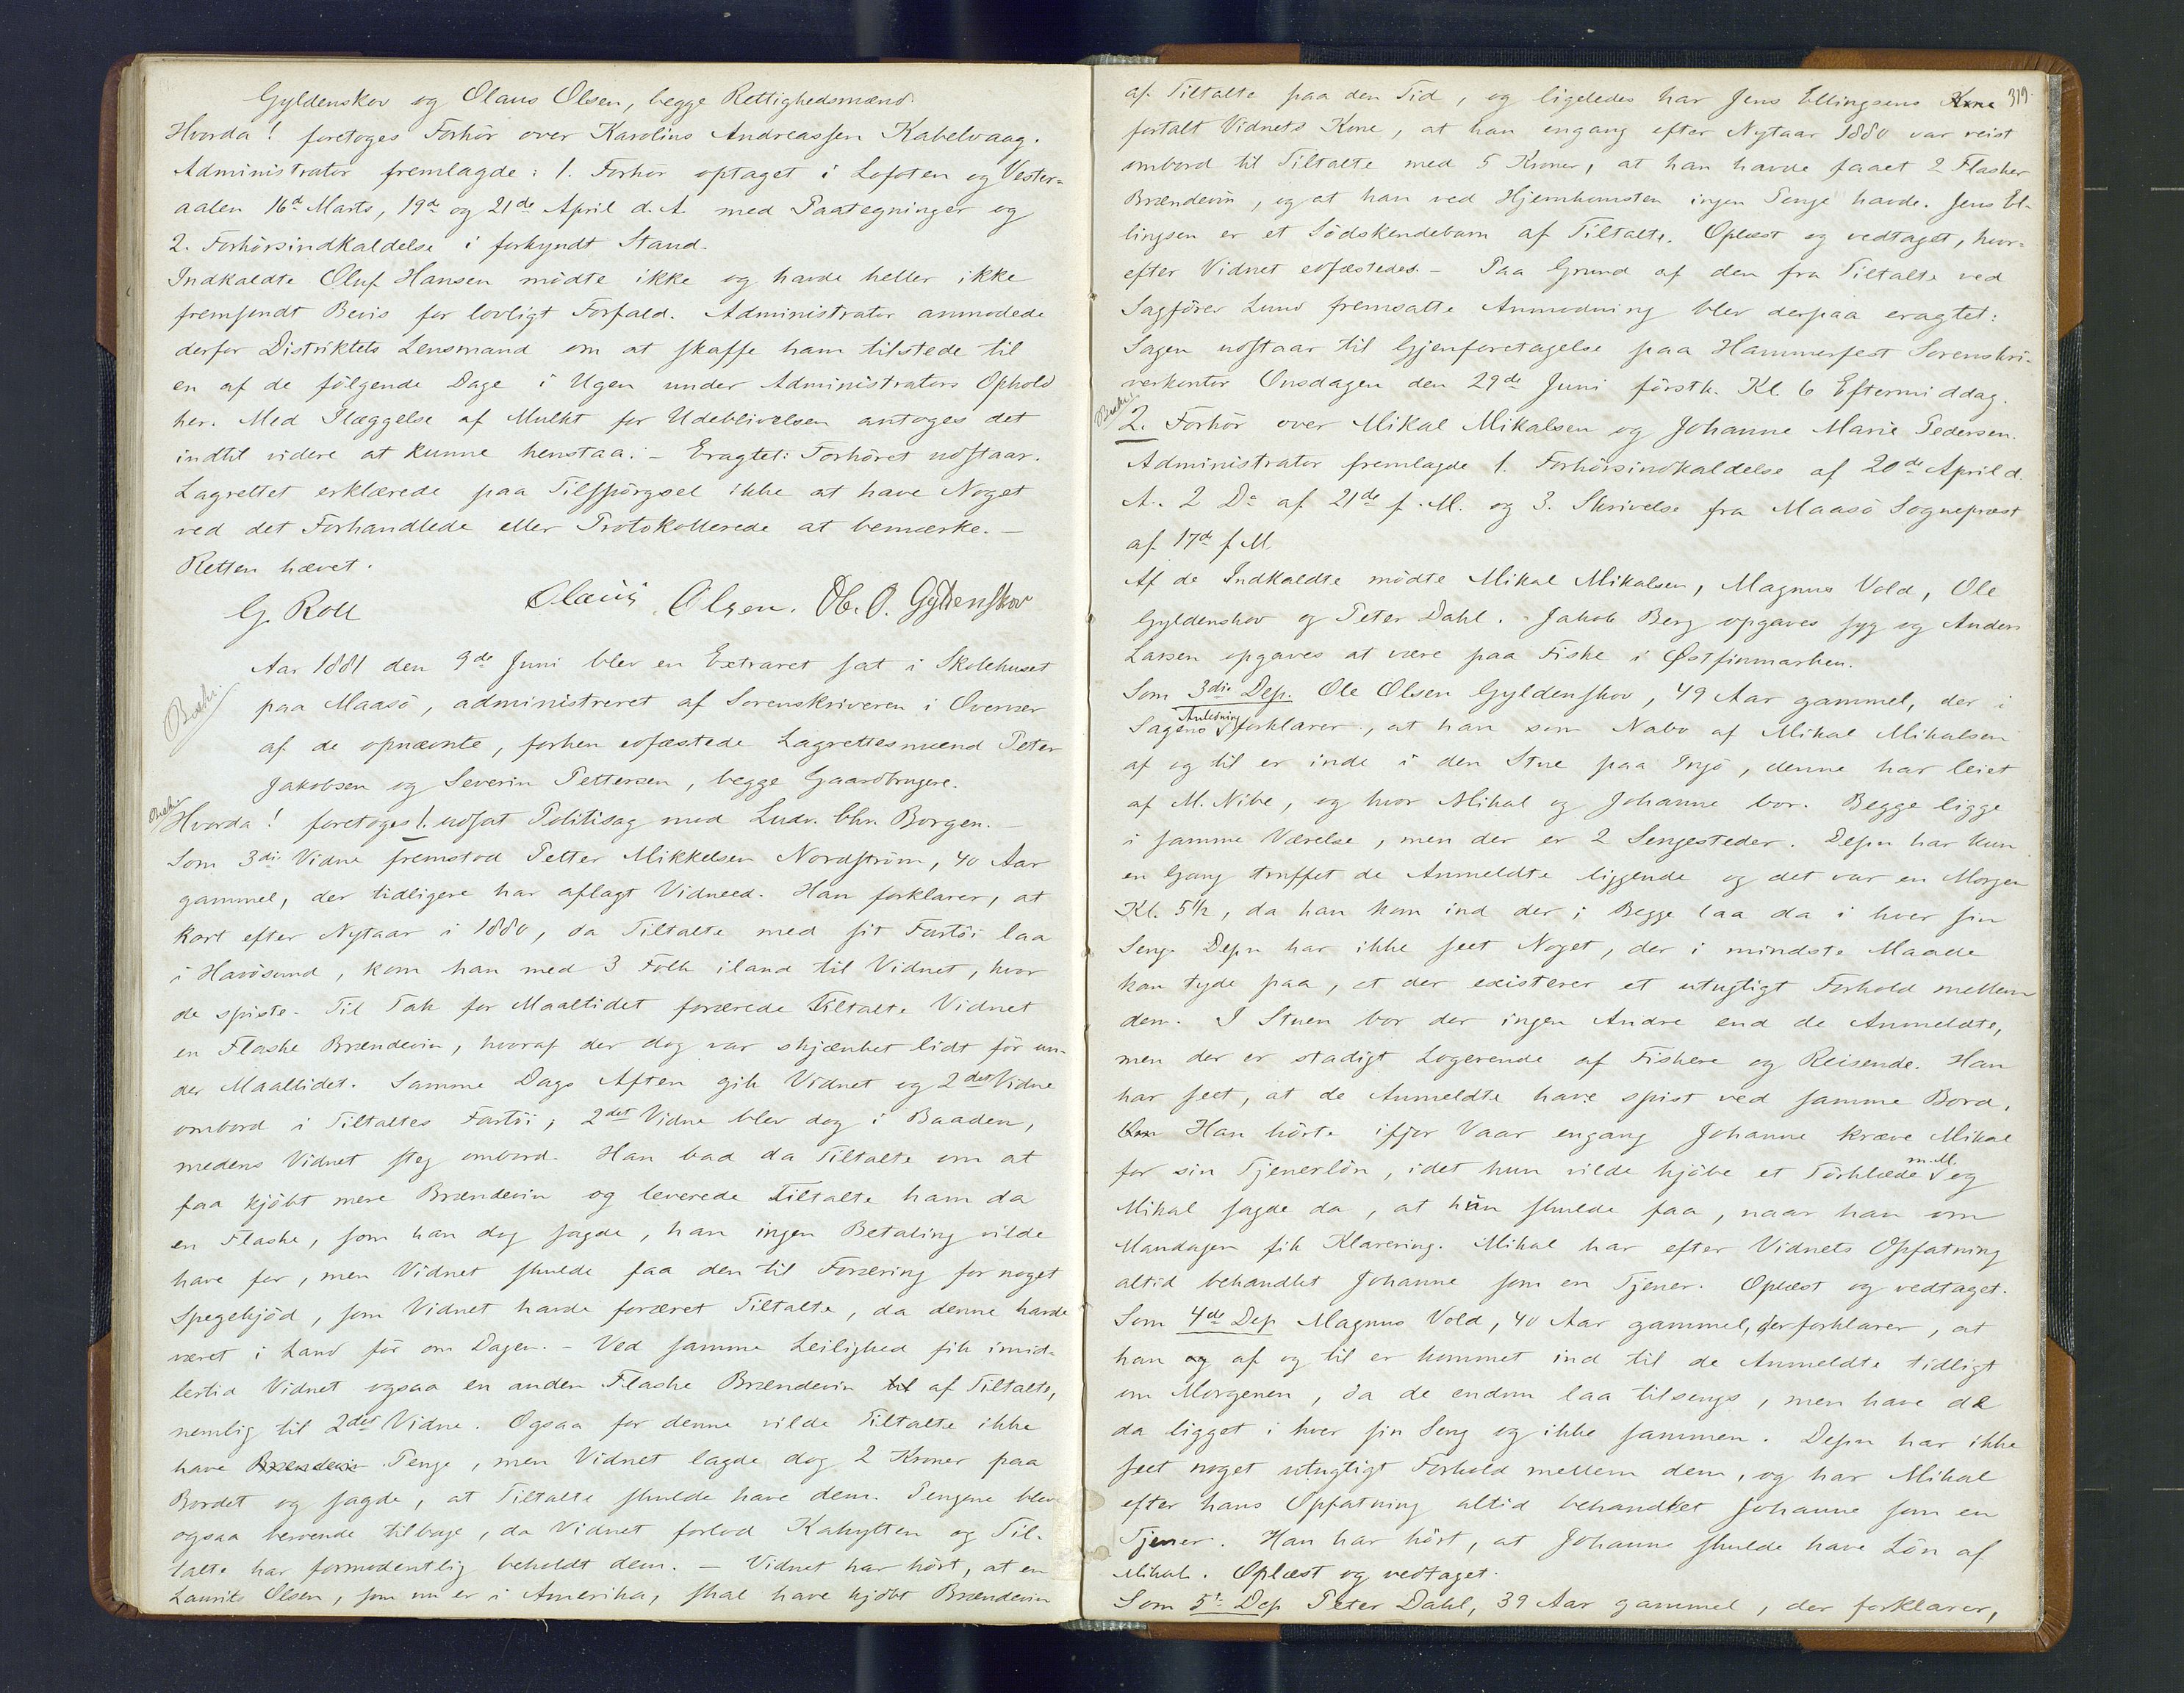 Gyldenskov og Olaus Olsen, begge Rettighedsmænd.
Hvorda! foretoges Forhör over Karolius Andreassen Kabelvaag.
Administrator fremlagde: 1. Forhör optaget i Lofoten og Vester-
aalen 16d Marts, 19de og 21de April d. A. med Paategninger og
2. Forhörsindkaldelse i forkyndt Stand.
Indkaldte Oluf Hansen mödte ikke og havde heller ikke
fremsendt Bevis for lovligt Forfald. Administrator anmodede
derfor Distriktets Lensmand om at skaffe ham tilstede til
en af de fölgende Dage i Ugen under Administrators Ophold
her. Med Ilæggelse af Mulkt for Udeblivelsen antoges det
indtil videre at kunne henstaa. - Eragtet: Forhöret udstaar.
Lagrettet erklærede paa Tilspörgsel ikke at have Noget
ved det Forhandlede eller Protokollerede at bemærke. -
Retten hævet.
G. Roll Olaus Olsen. Ole. O. Gyldenskov
Aar 1881 den 9de Juni blev en Extraret sat i Skolehuset
Beskr.
paa Maasö, administreret af Sorenskriveren i Overvær
af de opnævnte, forhen edfæstede Lagrettesmænd Peter
Jakobsen og Severin Pettersen, begge Gaardbrugere.
Beskr.
Hvorda! foretoges 1. udsat Politisag mod Ludv. Chr. Borgen. -
Som 3die Vidne fremstod Petter Mikkelsen Nordström, 40 Aar
gammel, der tidligere har aflagt Vidneed. Han forklarer, at
kort efter Nytaar i 1880, da Tiltalte med sit Fartöi laa
i Havösund, kom han med 3 Folk iland til Vidnet, hvor
de spiste. Til Tak for Maaltidet forærede Tiltalte Vidnet
en Flaske Brændevin, hvoraf der dog var skjænket lidt för un-
der Maaltidet. Samme Dags Aften gik Vidnet og 2det Vidne
ombord i Tiltaltes Fartöi; 2det Vidne blev dog i Baaden,
medens Vidnet steg ombord. Han bad da Tiltalte om at
faa kjöbt mere Brændevin og leverede Tiltalte ham da
en Flaske, som han dog sagde, han ingen Betaling vilde
have for, men Vidnet skulde faa den til Foræring for noget
Spegekjöd, som Vidnet havde foræret Tiltalte, da denne havde
været i Land för om Dagen. - Ved samme Leilighed fik imid-
lertid Vidnet ogsaa en anden Flaske Brændevin til af Tiltalte,
nemlig til 2det Vidne. Ogsaa for denne vilde Tiltalte ikke
have Brændevin Penge, men Vidnet lagde dog 2 Kroner paa
Bordet og sagde, at Tiltalte skulde have dem. Pengene blev
ogsaa beroende tilbage, da Vidnet forlod Kahytten og Til-
talte har formodentlig beholdt dem. - Vidnet har hört, at en
Laurits Olsen, som nu er i Amerika, skal have kjöbt Brændevin
319
af Tiltalte paa den Tid, og ligeledes har Jens Ellingsens Kone
fortalt Vidnets Kone, at han engang efter Nytaar 1880 var reist
ombord til Tiltalte med 5 Kroner, at han havde faaet 2 Flasker
Brændevin, og at han ved Hjemkomsten ingen Penge havde. Jens El-
lingsen er et Södskendebarn af Tiltalte. Oplæst og vedtaget, hvor-
efter Vidnet edfæstedes. - Paa Grund af den fra Tiltalte ved
Sagförer Lund fremsatte Anmodning blev derpaa eragtet:
Sagen udstaar til Gjenforetagelse paa Hammerfest Sorenskri-
verkontor Onsdagen den 29de Juni förstk. Kl. 6 Eftermiddag.
Beskr.
2. Forhör over Mikal Mikalsen og Johanne Marie Pedersen.
Administrator fremlagde 1. Forhörsindkaldelse af 20de April d.
A. 2 Do af 21de f. M. og 3. Skrivelse fra Maasö Sognepræst
af 17de f. M.
Af de Indkaldte mödte Mikal Mikalsen, Magnus Vold, Ole
Gyldenskov og Peter Dahl. - Jakob Berg opgaves syg og Anders
Larsen opgaves at være paa Fiske i Østfinmarken.
Som 3die Dep. Ole Olsen Gyldenskov, 49 Aar gammel, der i
Sagens Anledning forklarer, at han som Nabo af Mikal Mikalsen
af og til er inde i den Stue paa , denne har leiet
af M. Nibe, og hvor Mikal og Johanne bor. Begge ligge
i samme Værelse, men der er 2 Sengesteder. Depn har kun
en Gang truffet de Anmeldte liggende og det var en Morgen
Kl. 5½, da han kom ind der; Begge laa da i hver sin
Seng. Depn har ikke seet Noget, der i mindste Maade
kan tyde paa, at der existerer et utugtigt Forhold mellem
dem. I Stuen bor der ingen Andre end de Anmeldte,
men der er stadigt Logerende af Fiskere og Reisende. Han
har seet, at de Anmeldte have spist ved samme Bord.
Han hörte ifjor Vaar engang Johanne kræve Mikal
for sin Tjenerlön, idet hun vilde kjöbe et Törklæde m. M. og
Mikal sagde da, at hun skulde faa, naar han om
Mandagen fik Klarering. Mikal har efter Vidnets Opfatning
altid behandlet Johanne som en Tjener. Oplæst og vedtaget.
Som 4de Dep Magnus Vold, 40 Aar gammel, der forklarer, at
han og af og til er kommet ind til de Anmeldte tidligt
om Morgenen, da de endnu laa tilsengs, men have de
da ligget i hver sin Seng og ikke sammen. Depn har ikke
seet noget utugtigt Forhold mellem dem, og har Mikal
efter hans Opfatning altid behandlet Johanne som en
Tjener. Han har hört, at Johanne skulde have Lön af
Mikal. Oplæst og vedtaget.
Som 5te Dep Peter Dahl, 39 Aar gammel, der forklarer,